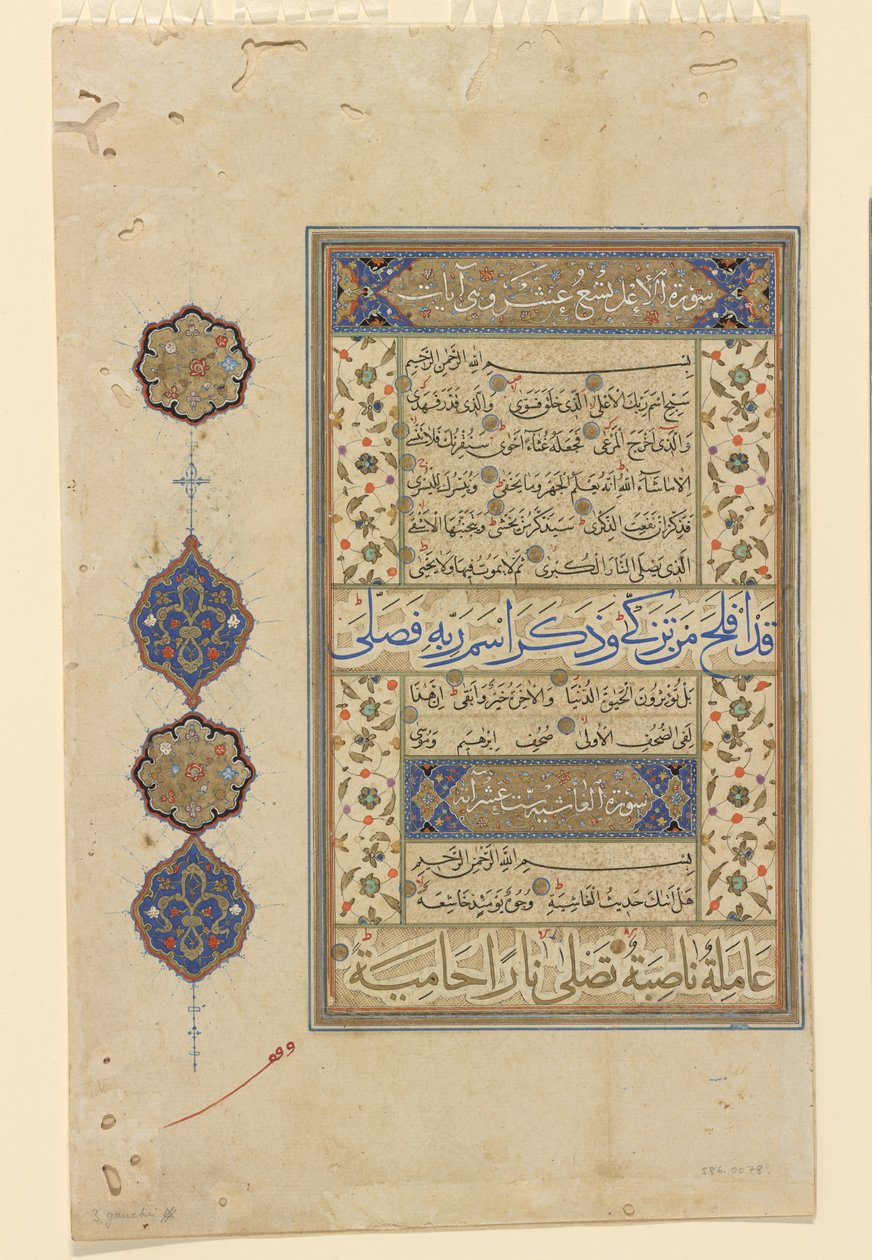 سورة الاعلى تسع عشر وهی آیات
بِسْمِ اللهِ الرَّحْمٰنِ الرَّحِیمِ
سَبِّحِ اسْمَ رَبِّكَ الْاَعْلَى الَّذِی خَلَقَ فَسَوّٰی وَالَّذِی قَدَّرَ فَهَدٰی
وَالَّذِی اَخْرَجَ الْمَرْعٰی فَجَعَلَهُ غُثَآءً اَحْوٰی سَنُقْرِئُكَ فَلَا تَنْسٰی
اِلَّا مَا شَآءَ اللهُ اِنَّهُ یَعْلَمُ الْجَهْرَ وَمَا یَخْفٰی وَنُیَسِّرُكَ لِلْیُسْرٰی
فَذَكِّرْ اِنْ نَفَعَتِ الذِّكْرٰی سَیَذَّكَّرُ مَنْ یَخْشٰی وَیَتَجَنَّبُهَا الْاَشْقَى
الَّذِی یَصْلَى النَّارَ الْكُبْرٰی ثُمَّ لَا یَمُوتُ فِیهَا وَلَا یَحْیٰی
قَدْ اَفْلَحَ مَنْ تَزَكّٰی وَذَكَرَ اسْمَ رَبِّهِ فَصَلّٰی
بَلْ تُؤْثِرُونَ الْحَیٰوةَ الدُّنْیَا وَالْاٰخِرَةُ خَیْرٌ وَاَبْقٰی اِنَّ هٰذَا
لَفِی الصُّحُفِ الْاُولٰی صُحُفِ اِبْرٰهِیمَ وَمُوسٰی
سورة الغاشیة ست عشر آیة
بِسْمِ اللهِ الرَّحْمٰنِ الرَّحِیمِ
هَلْ اَتٰیكَ حَدِیثُ الْغَاشِیَةِ وُجُوهٌ یَوْمَئِذٍ خَاشِعَةٌ
عَامِلَةٌ نَاصِبَةٌ تَصْلٰی نَارًا حَامِیَةً
وقف
586.0078
3 gauche